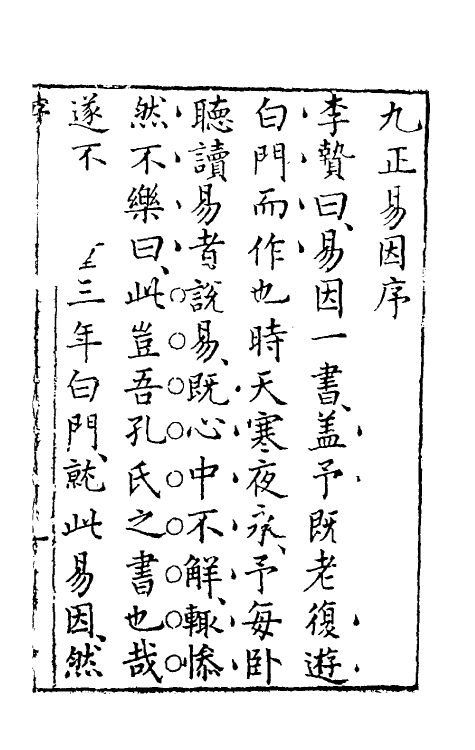 九正易因序
李贄曰易因一書蓋予既老復遊
白門而作也時天寒夜永予每卧
聽讀易者說易既心中不解輙慘
然不樂曰此豈吾孔氏之書也哉
遂不 三年白門就此易因然
序